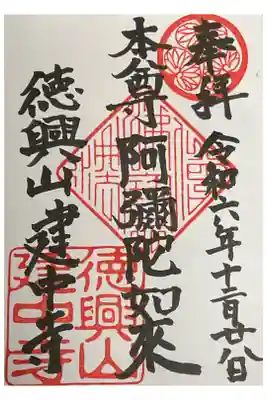 奉拝
令和六年十二月廿八日
本尊阿彌陀如來
徳興山建中寺
徳興山
建中寺